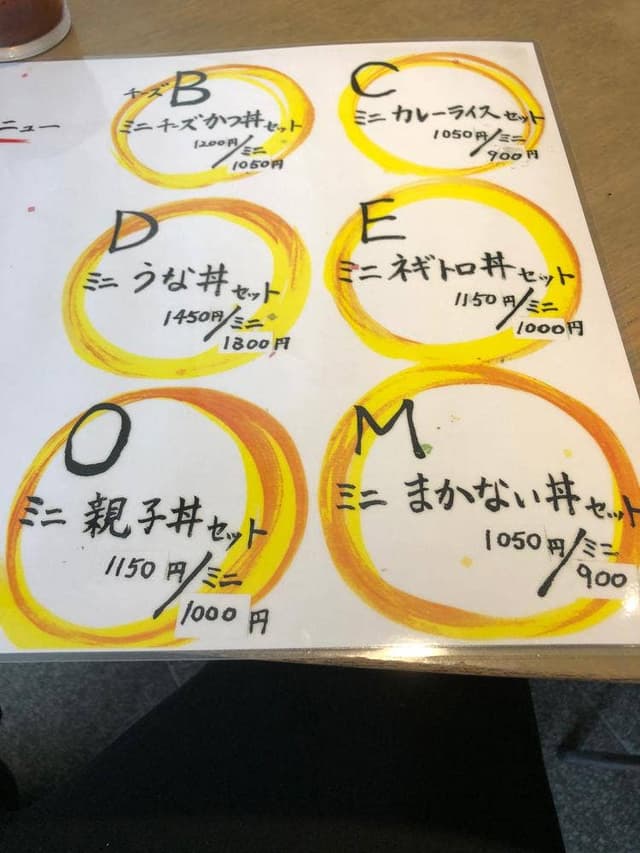 ニュー
チーズB
ミニチーズかつ丼セット
1200円/ミニ
1050円
C
ミニカレーライスセット
1050円/ミニ
900円
D
ミニうな丼セット
1450円/ミニ
1300円
E
ミニネギトロ丼セット
1150円/ミニ
1000円
O
ミニ親子丼セット
1150円/ミニ
1000円
M
ミニまかない丼セット
1050円/ミニ
900円